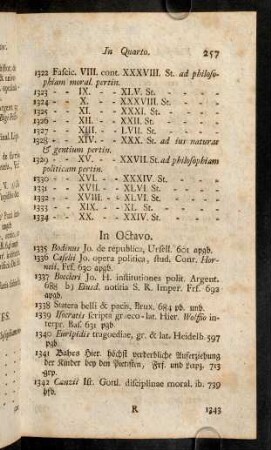 In Quarto. 257
1322 Fascic. VIII. cont. XXXVIII. St. ad philoso-
phiam moral. pertin.
1323 - - IX. - - XLV. St. - -
1324 - - X. - - XXXVIII. St. - -
1325 - - XI. - - XXXI. St. - -
1326 - - XII. - - XXII. St. - -
1327 - - XIII. - - LVII. St. - -
1328 - - XIV. - - XXX. St. ad ius naturae
& gentium pertin.
1329 - - XV. - - XXVII. St. ad philosophiam
politicam pertin.
1330 - - XVI. - - XXXIV. St. - -
1331 - - XVII. - - XLVI. St. - -
1332 - - XVIII. - - XLVI. St. - -
1333 - - XIX. - - XL. St. - -
1334 - - XX. - - XXIV. St. - -
In Octavo.
1335 Bodinus Jo. de republica, Ursell. 601 apgb.
1336 Caselii Jo. opera politica, stud. Conr. Hor-
neii, Frf. 630 apgb.
1337 Boecleri Jo. H. institutiones polit. Argent.
688 b) Eiusd. notitia S. R. Imper. Frf. 692
apgb.
1338 Statera belli & pacis, Brux. 684 pb. unb.
1339 Isocratis scripta graeco-lat. Hier. Wolfio in-
terpr. Bas. 631 pgb
1340 Euripidis tragoediae, gr. & lat. Heidelb 597
pgb.
1341 Bahes Hier. höchst verderbliche Auferziehung
der Kinder bey den Pietisten, Frf. und Leipz. 713
grp.
1342 Canzii Isr. Gottl. disciplinae moral. ib. 739
hfb.
R 1343